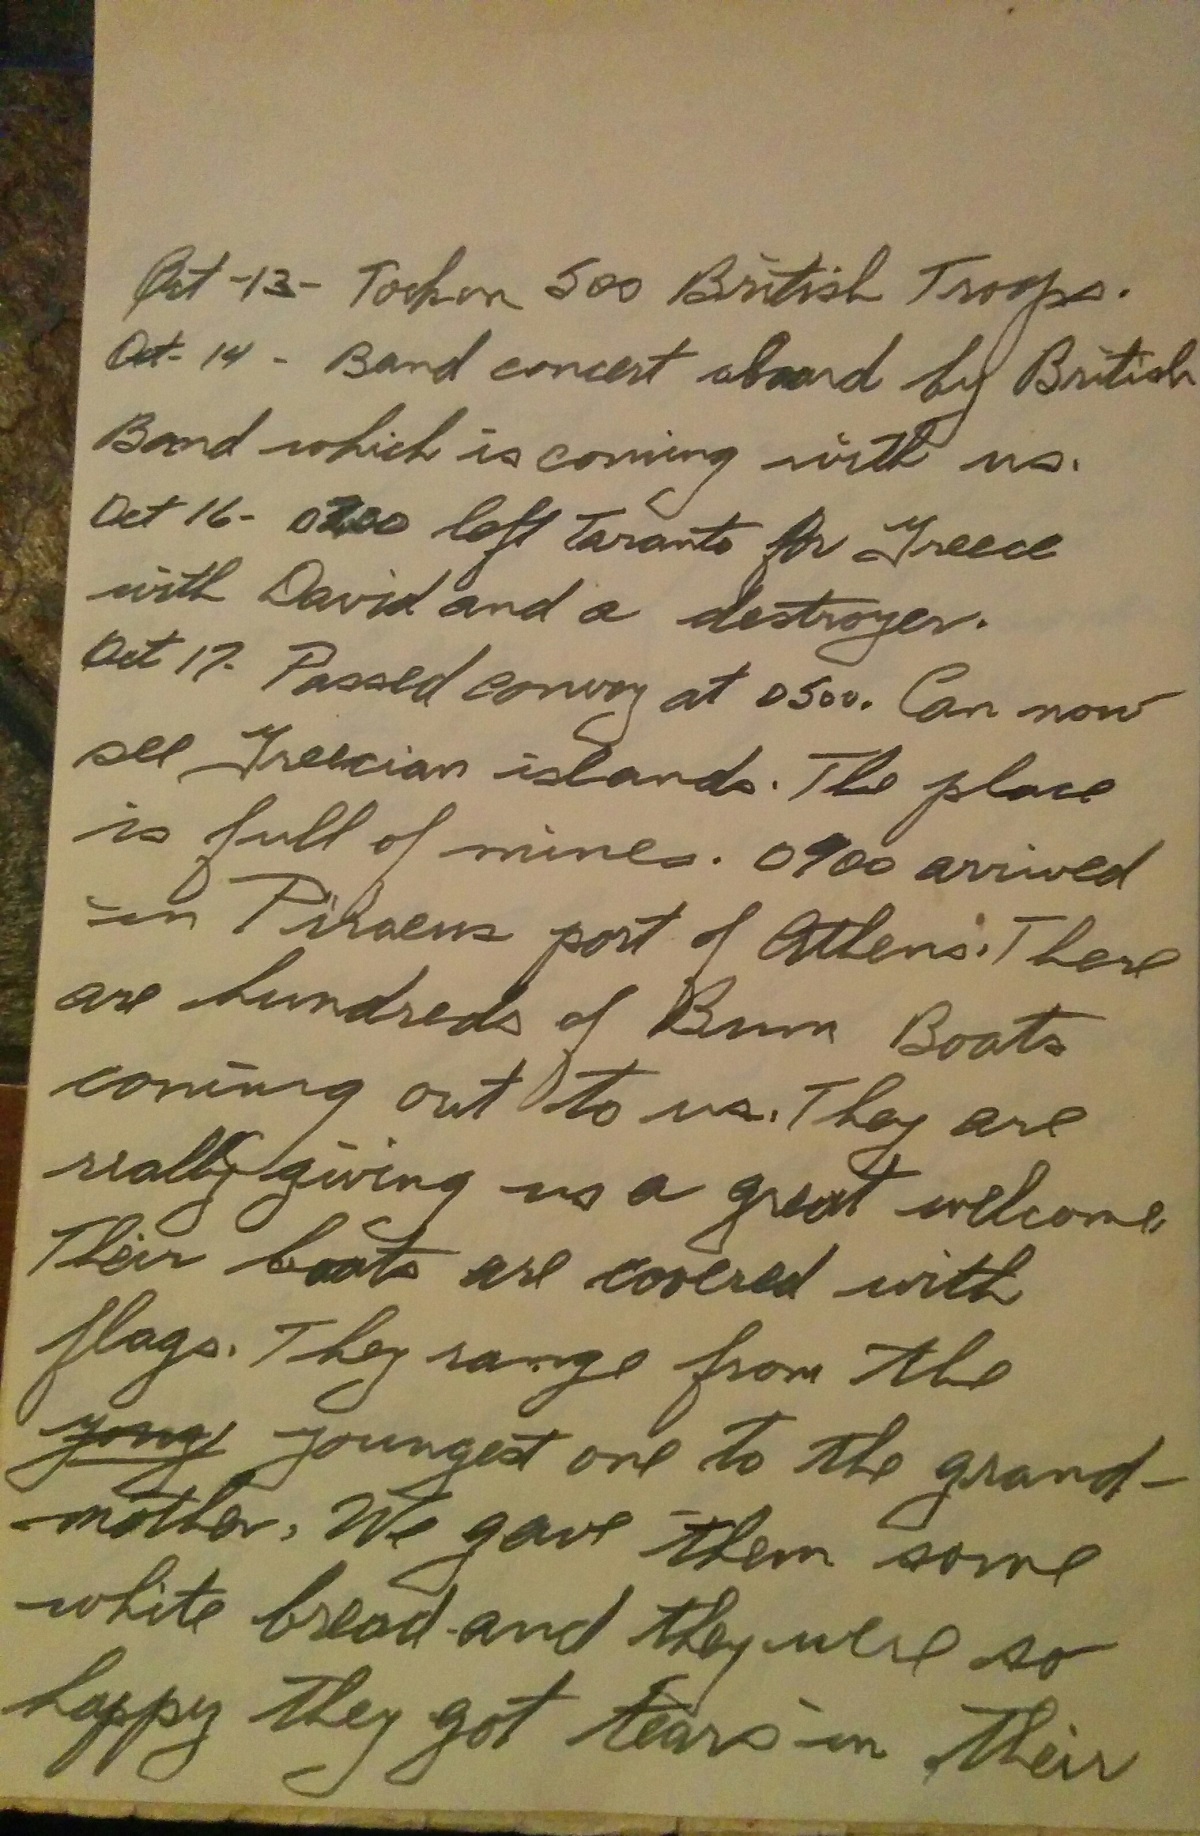 Oct -13- Took on 500 British Troops.
Oct- 14 - Band concert aboard by British
Band which is coming with us.
Oct 16- 0200 left Taranto for Greece
with David and a destroyer.
Oct 17. Passed convoy at 0500. Can now
see Greecian islands. The place
is full of mines. 0900 arrived
in Piraeus port of Athens. There
are hundreds of Bum Boats
coming out to us. They are
really giving us a great welcome.
Their boats are covered with
flags. They range from the
yong youngest one to the grand-
mother. We gave them some
white bread and they were so
happy they got tears in their